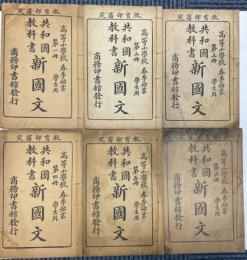 定審部育教
高等小學校 春季始業
第一冊 學生用
共和國
教科書
新國文
商務印書館發行
定審部育教
高等小學校 春季始業
第二冊 學生用
共和國
教科書
新國文
商務印書館發行
定審部育教
高等小學校 春季始業
學生用
共和國
教科書
新國文
商務印書館發行
定審部育教
高等小學校 春季始業
學生用
共和國
教科書
新國文
商務印書館發行
定審部育教
高等小學校 春季始業
第五冊 學生用
共和國
教科書
新國文
商務印書館發行
定審部育教
高等小學校 春季始業
第六冊 學生用
共和國
教科書
新國文
商務印書館發行